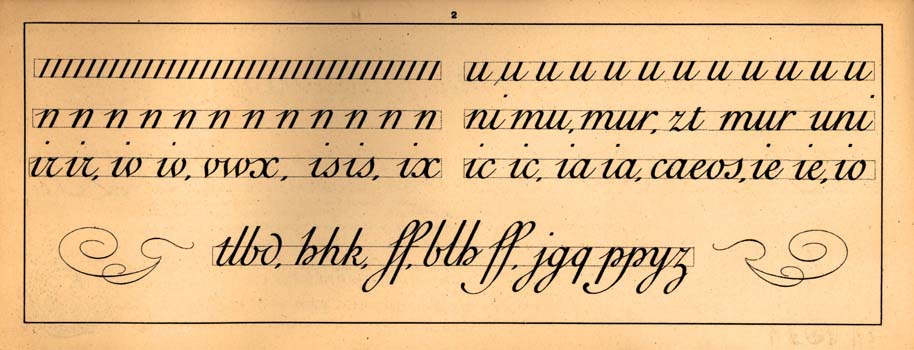 2
u u u u u u u u u u u u
n n n n n n n n n n n n ni mu, mur, zt mur uni
ir ir, iv iv, vwx, isis, ix ic ic, ia ia, caeos, ie ie, io
tlbd, hhk, ff, blh ff, jgq ppyz